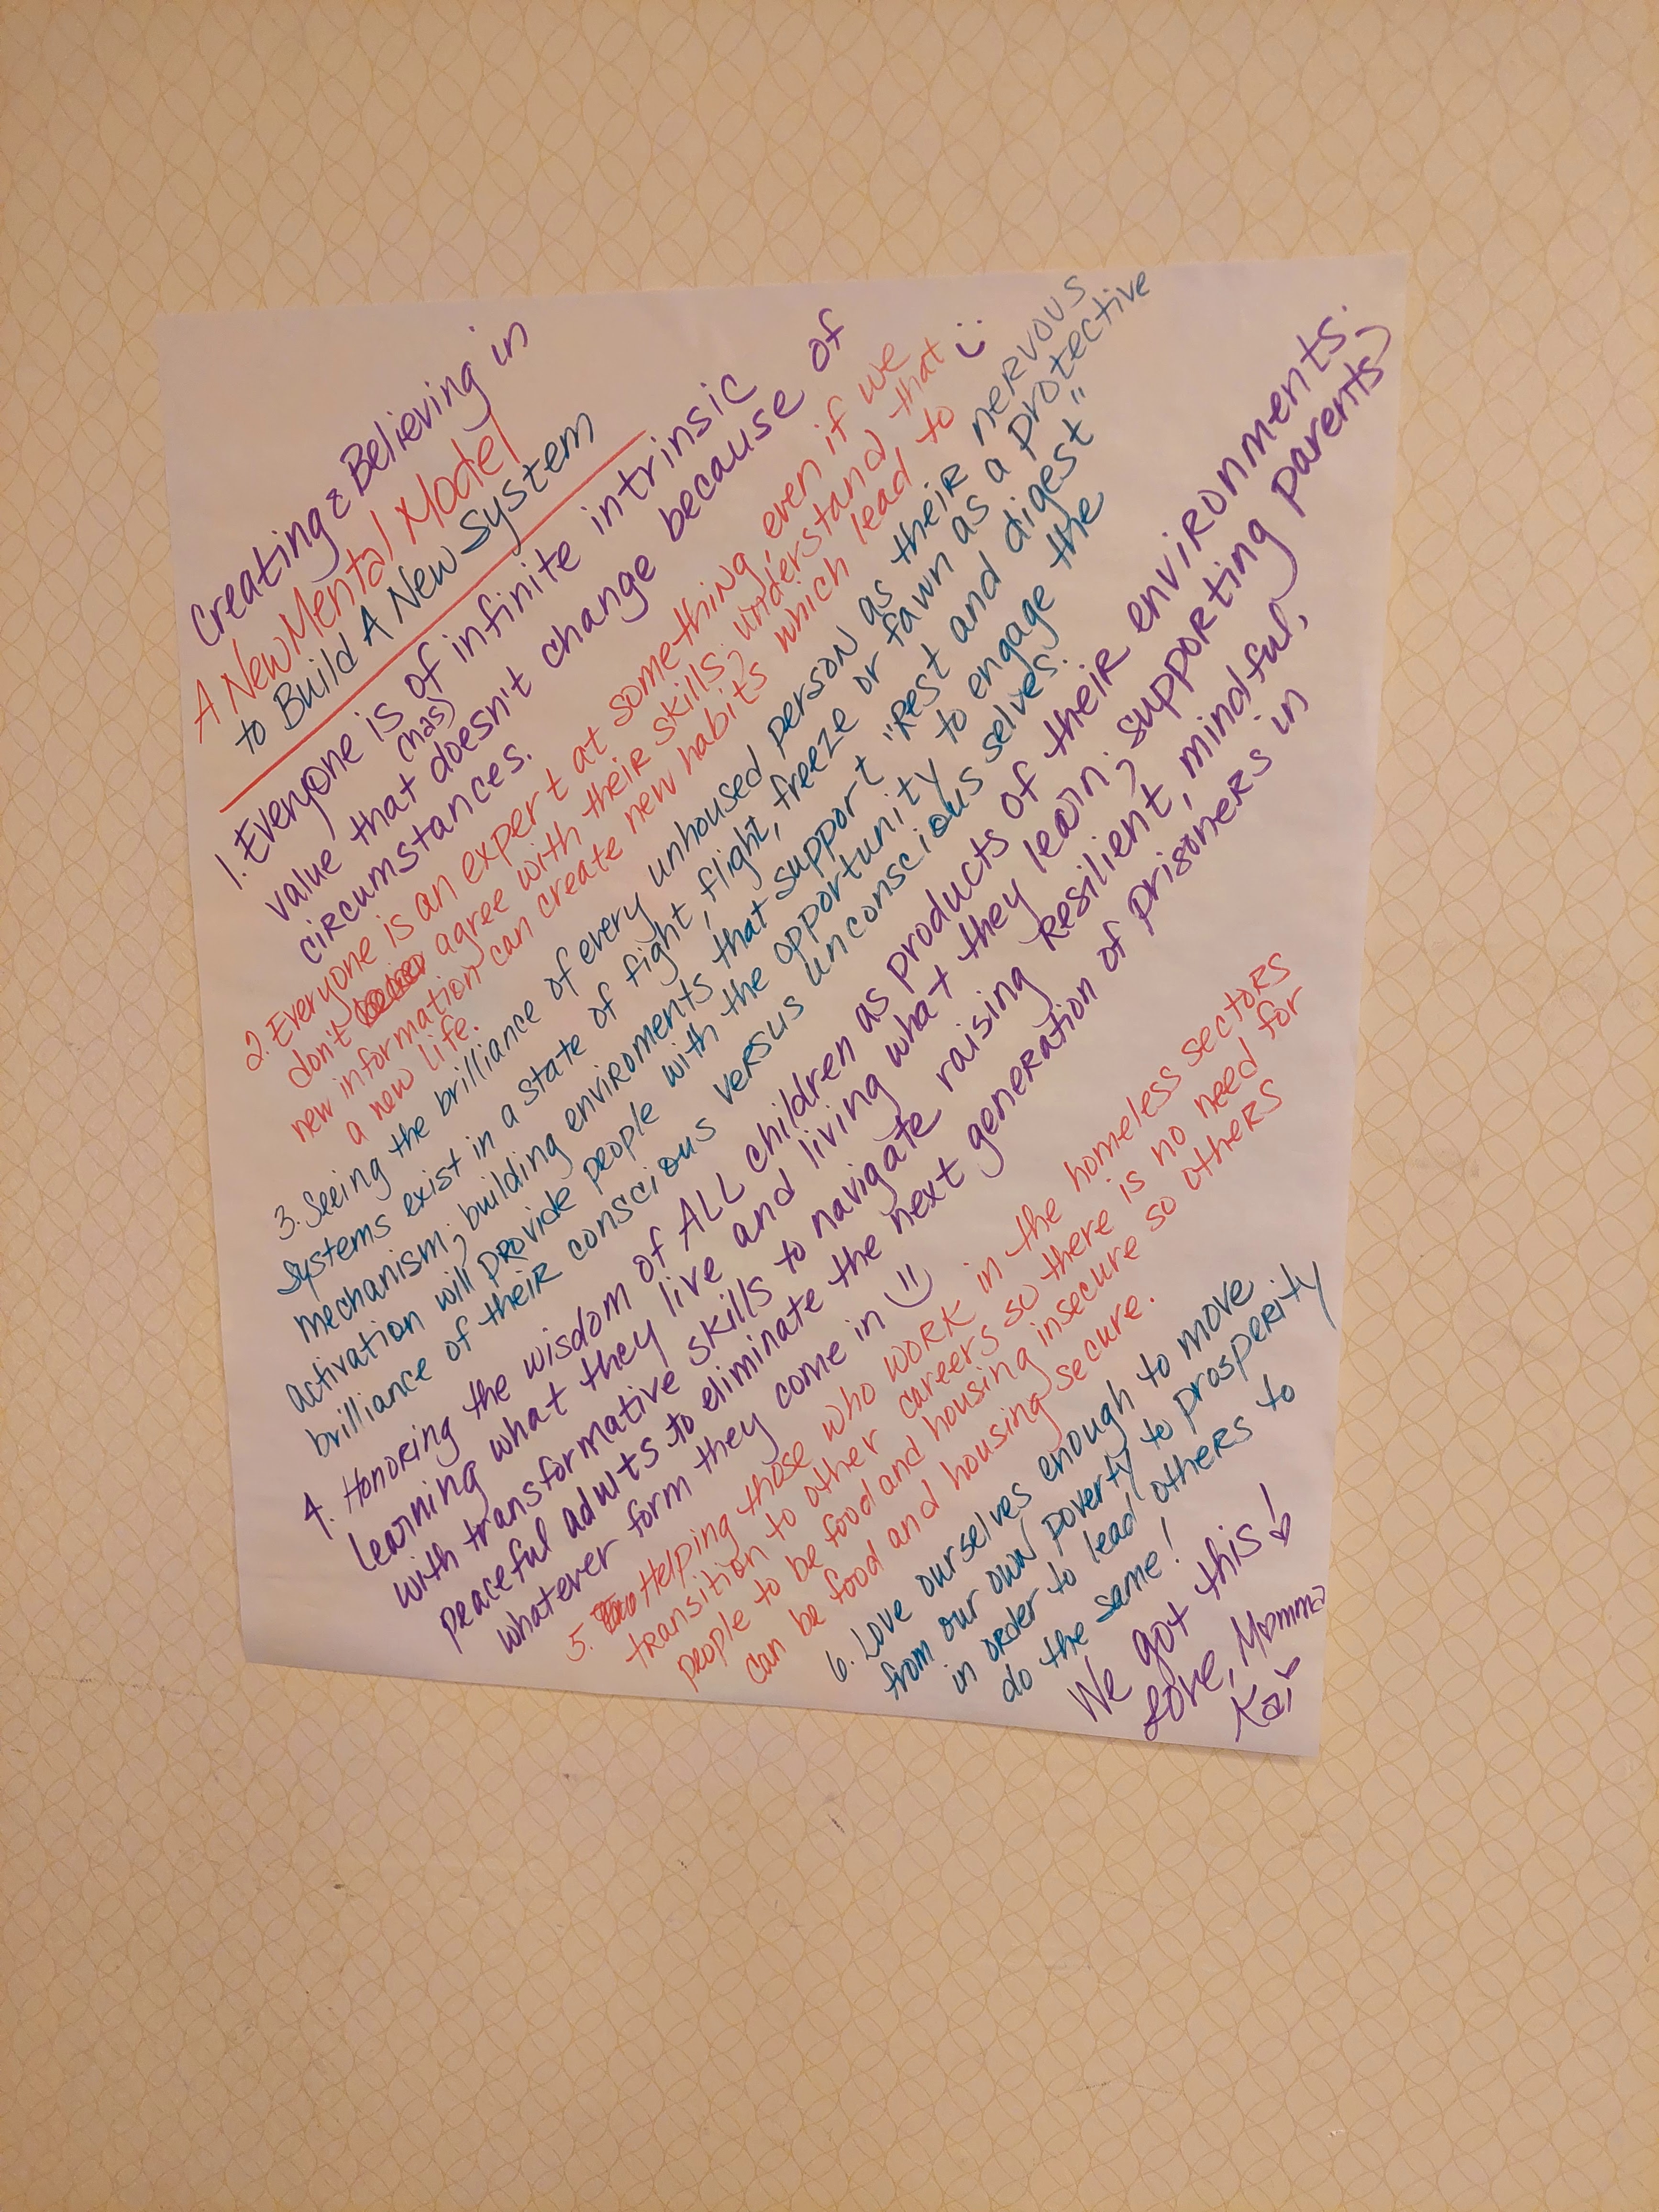 Creating & Believing in
A New Mental Model
to Build A New System
1. Everyone is of infinite intrinsic
(has)
value that doesn't change because of
circumstances.
2. Everyone is an expert at something, even if we
don't agree with their skills; understand that
new information can create new habits which lead to
a new life. :)
3. Seeing the brilliance of every unhoused person as their nervous
systems exist in a state of fight, flight, freeze or fawn as a protective
mechanism; building enviroments that support "Rest and digest"
activation will provide people with the opportunity to engage the
brilliance of their conscious versus unconscious selves.
4. Honoring the wisdom of ALL children as products of their environments.
Learning what they live and living what they learn; supporting parents
with transformative skills to navigate raising resilient, mindful,
peaceful adults to eliminate the next generation of prisoners in
whatever form they come in :)
5. Helping those who work in the homeless sectors
transition to other careers so there is no need for
people to be food and housing insecure so others
can be food and housing secure.
6. Love ourselves enough to move
from our own poverty to prosperity
in order to lead others to
do the same!
We got this!
Love, Momma
Kai